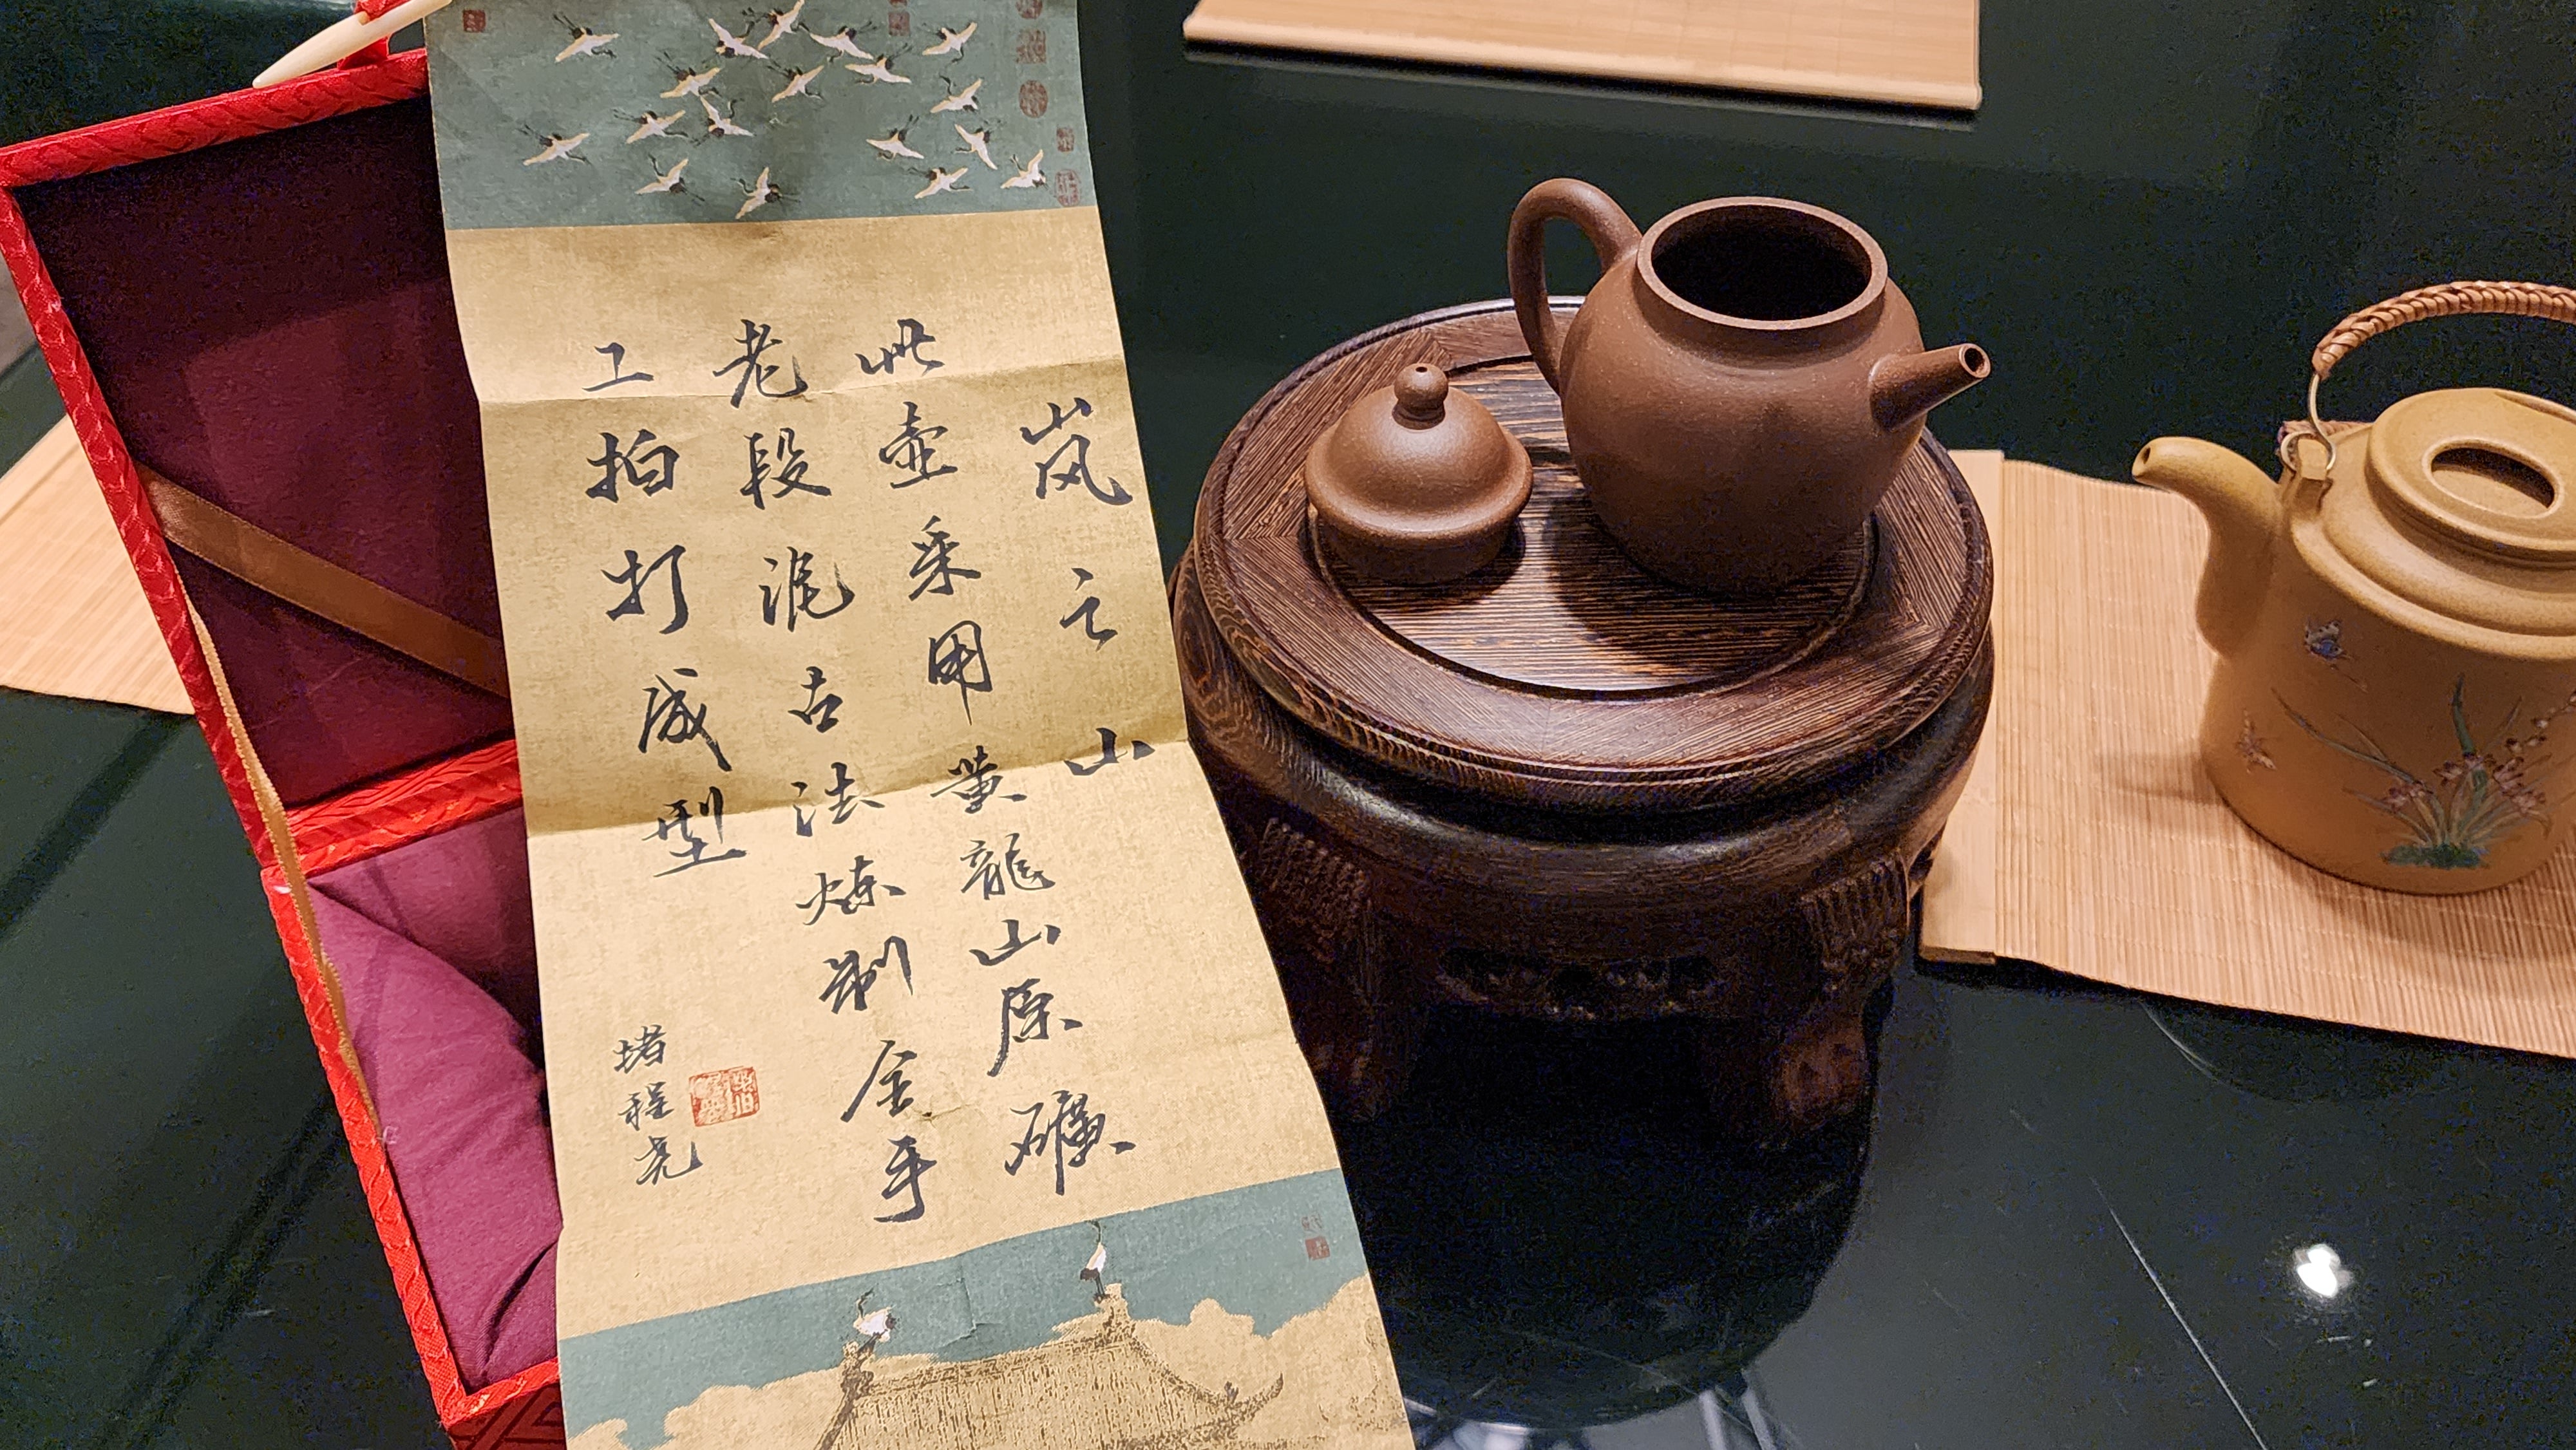 岚之山
此壶采用黄龍山原礦
老段泥古法炼制全手
工拍打成型
堵程尧